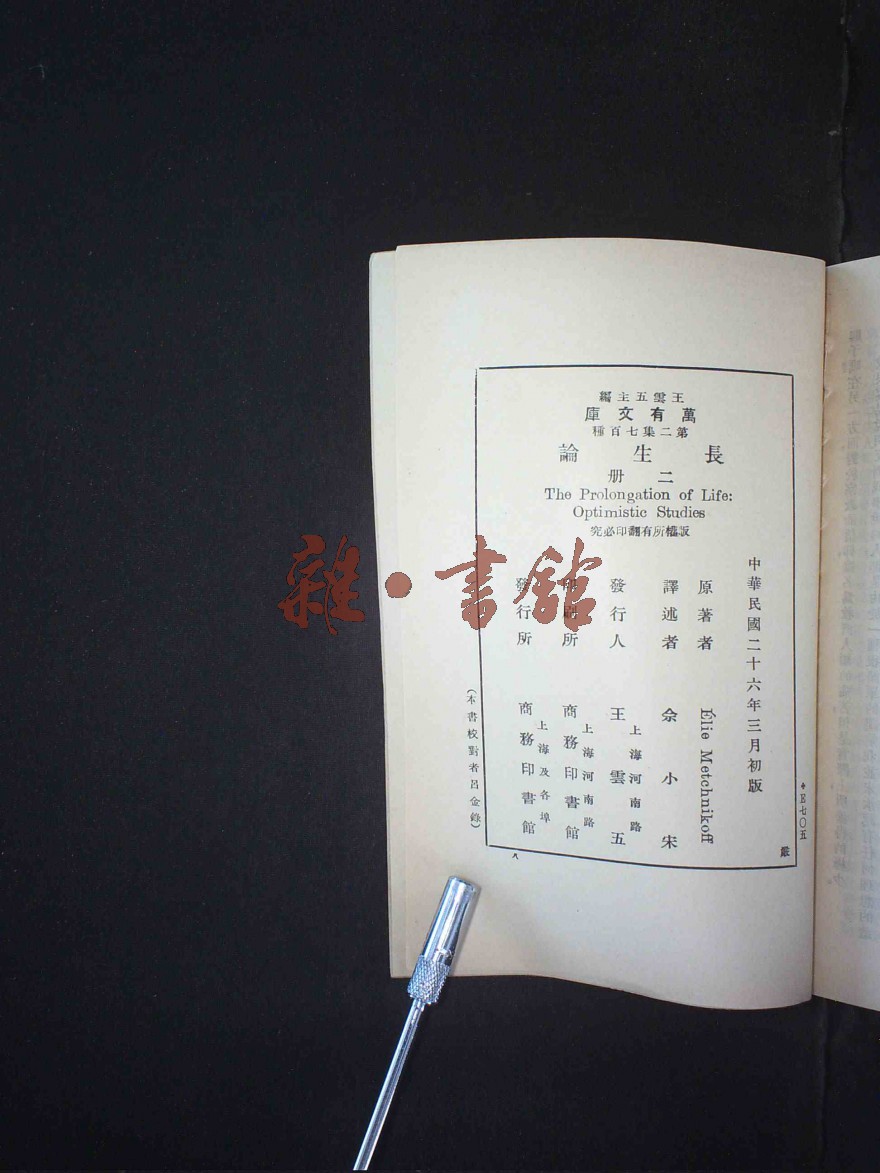 王雲五主編
萬有文庫
第二集七百種
長生論
二册
The Prolongation of Life:
Optimistic Studies
版權所有翻印必究
中華民國二十六年三月初版
原著者 Élie Metchnikoff
譯述者 佘小宋
發行人 王雲五
上海河南路
印刷所 商務印書館
上海河南路
發行所 商務印書館
上海及各埠
(本書校對者呂金錄)
E七〇五
嚴
雜·書館